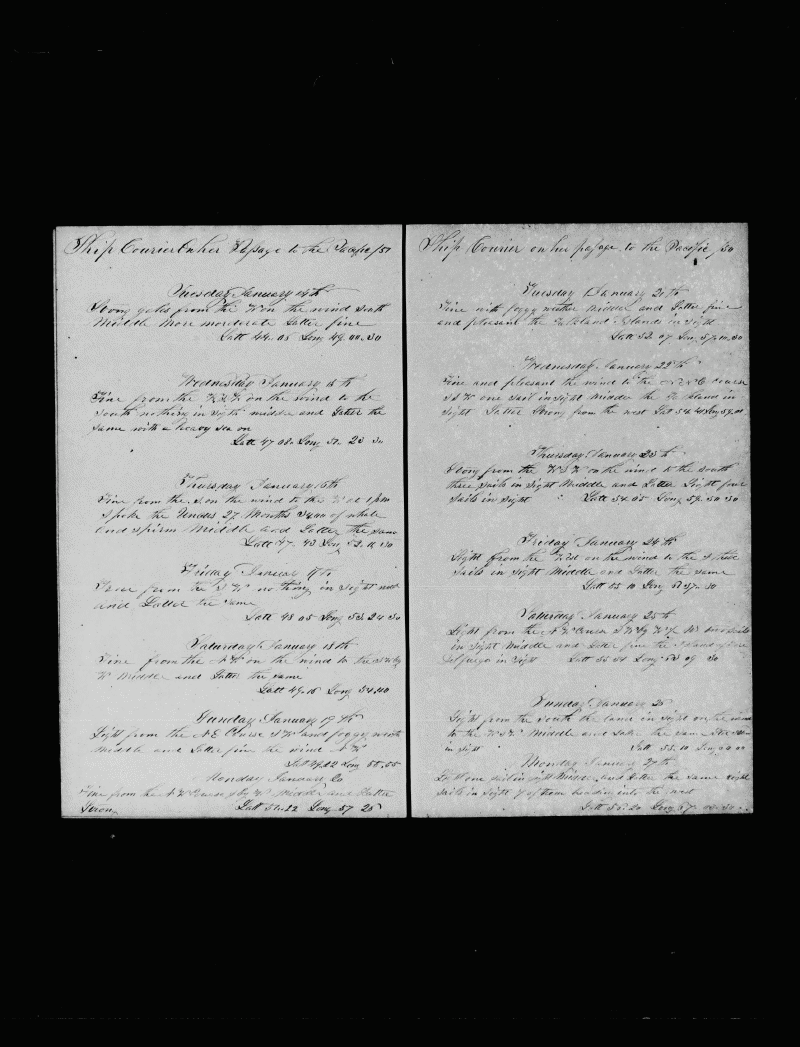 Ship Courier On her Passage to the Pacific /50
Tuesday January 14th
Strong gales from the W on the wind South
Middle More morderate Latter fine
Latt 44.05 Long 49.00.30
Wednesday January 15th
Fine from the W.S.W on the wind to the
South nothing in sight middle and Latter the
same with a heavy sea on
Latt 47 08 Long 51.23 30
Thursday January 16th
Fine from the S on the wind to the W at 1 pm
Spoke the 27 Months 2400 of whale
and sperm Middle and Latter the same
Latt 47.43 Long 52.10.30
Friday January 17th
Fine from the S W nothing in sight mid
and Latter the same
Latt 48 05 Long 53.24 30
Saturday January 18th
Fine from the N W on the wind to the S W by
W Middle and Latter the same
Latt 49.15 Long 54.40
Sunday January 19th
Light from the N.E Course S W and foggy weath
Middle and Latter fine the wind N W
Latt 49.52 Long 55.55
Monday January 20
Fine from the N W Course S by W Middle and Latter
Strong Latt 51.22 Long 57 25
Ship Courier on her passage to the Pacific /50
Tuesday January 21th
Fine with foggy weather Middle and Latter fine
and pleasant the Islands in sight
Latt 52.07 Long 57.10.30
Wednesday January 22th
Fine and pleasant the wind to the N N E Course
S S W one sail in sight Middle the Islands in
sight Latter Strong from the west Latt 54.48 Long 59.01
Thursday January 23th
Strong from the W S W on the wind to the South
three sails in sight Middle and Latter Light four
Sails in sight Latt 54.05 Long 59.50 30
Friday January 24th
Light from the West on the wind to the S three
Sails in sight Middle and Latter the same
Latt 55 10 Long 61.37.30
Saturday January 25th
Light from the N W Course S W by W 1/2 W two sails
in sight Middle and Latter fine the Island of
in sight Latt 55 54 Long 63 09 30
Sunday January 26
Light from the South the land in sight on the wind
to the W S W Middle and Latt the same
in sight Latt 55.10
Monday January 27th
Light one sail in sight Middle and Latter the same eight
Sails in sight 7 of them heading into the west
Latt 55.20 Long 67